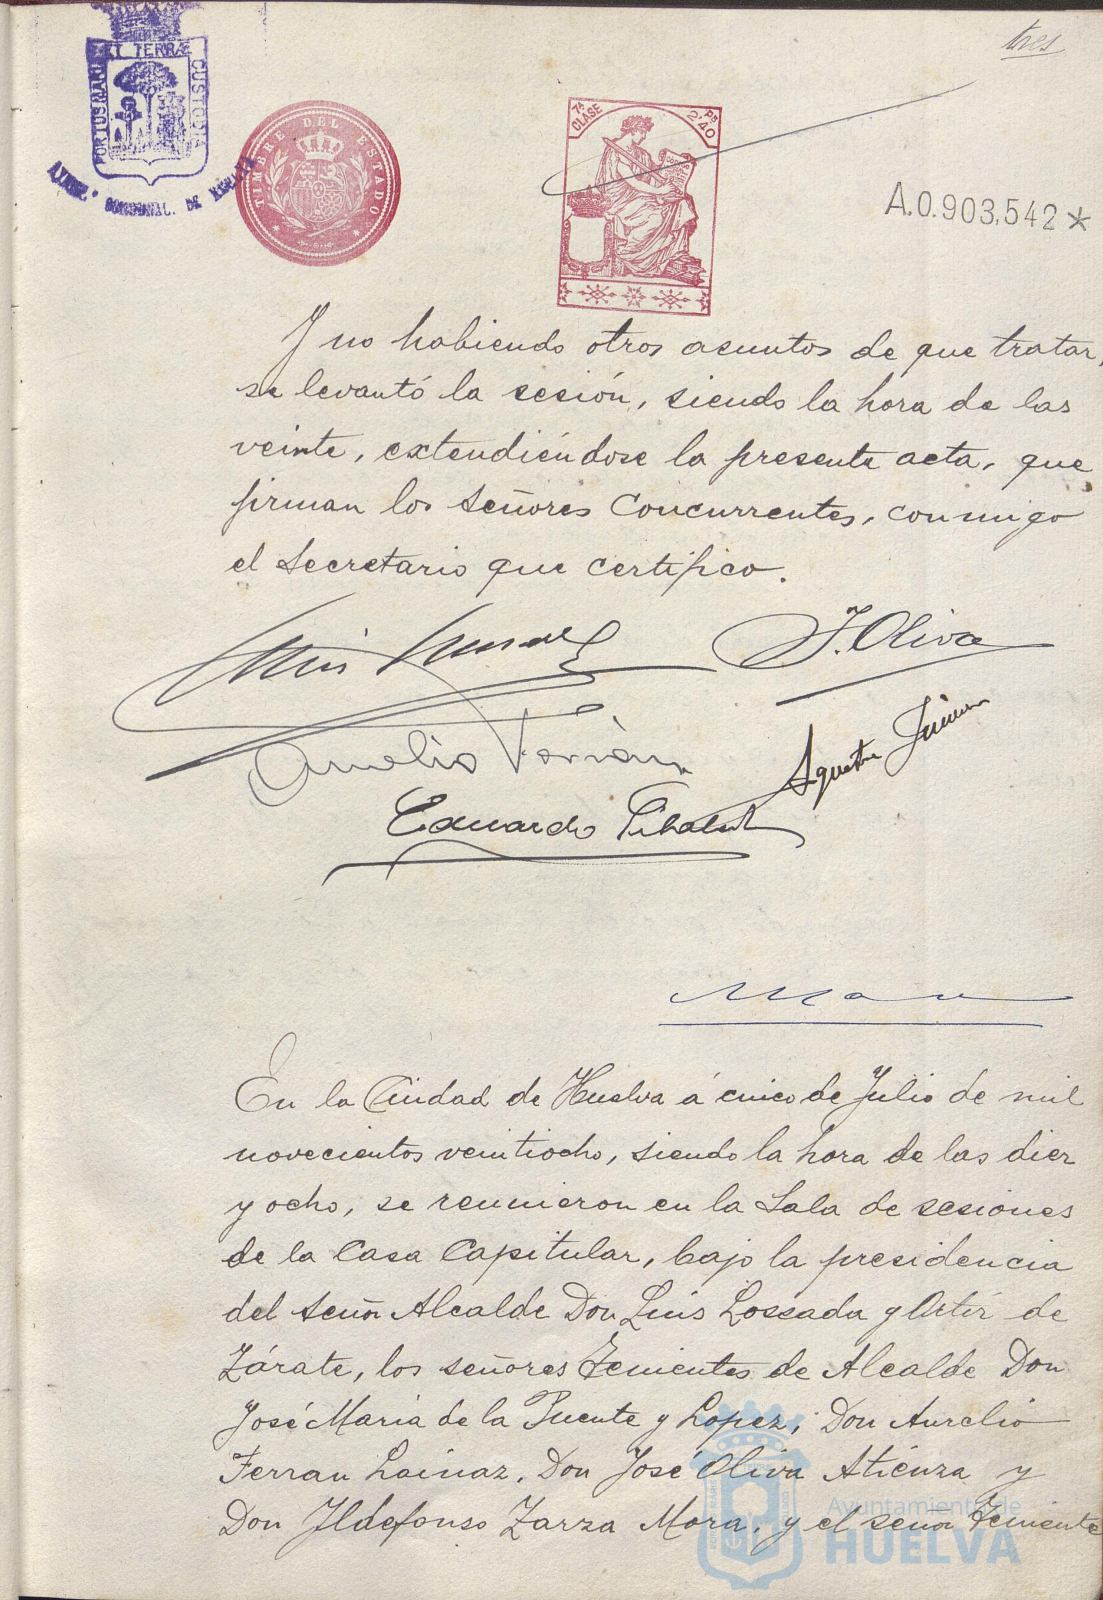 tres
PORTUS MARIS ET TERRÆ CUSTODIA
TIMBRE DEL ESTADO
7ª CLASE
Ps 2'40
A.0.903,542*
Y no habiendo otros asuntos de que tratar,
se levantó la sesión, siendo la hora de las
veinte, extendiéndose la presente acta, que
firman los señores Concurrentes, conmigo
el Secretario que certifico.
J. Oliva
Aurelio Ferrán
Agustín Jimenez
Eduardo
En la Ciudad de Huelva á cinco de Julio de mil
novecientos veintiocho, siendo la hora de las diez
y ocho, se reunieron en la Sala de sesiones
de la Casa Capitular, bajo la presidencia
del señor Alcalde Don Luis Lossada y Ortiz de
Zárate, los señores Tenientes de Alcalde Don
José María de la Puente y Lopez, Don Aurelio
Ferran Lainaz, Don José Oliva Atienza y
Don Ildefonso Zarza Mora, y el señor Teniente
Ayuntamiento de
HUELVA